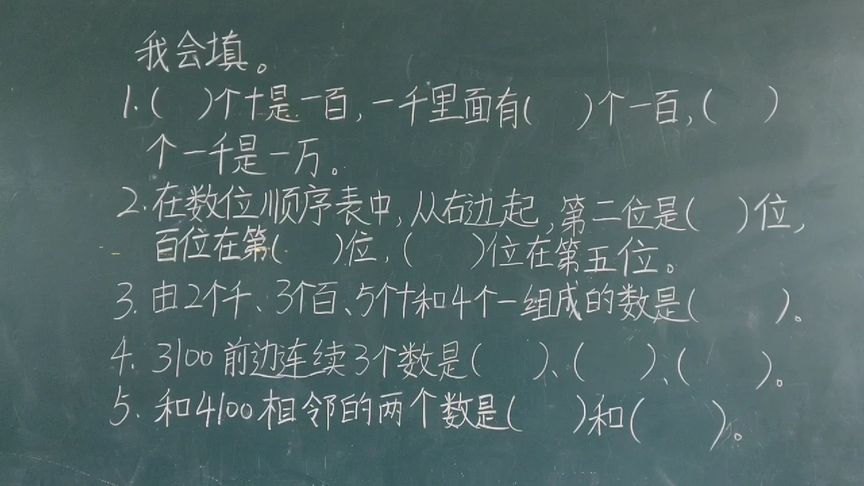 我会填。
1.(  )个十是一百,一千里面有(  )个一百,(  )
个一千是一万。
2.在数位顺序表中,从右边起,第二位是(  )位,
百位在第(  )位,(  )位在第五位。
3.由2个千、3个百、5个十和4个一组成的数是(  )。
4.3100前边连续3个数是(  )、(  )、(  )。
5.和4100相邻的两个数是(  )和(  )。